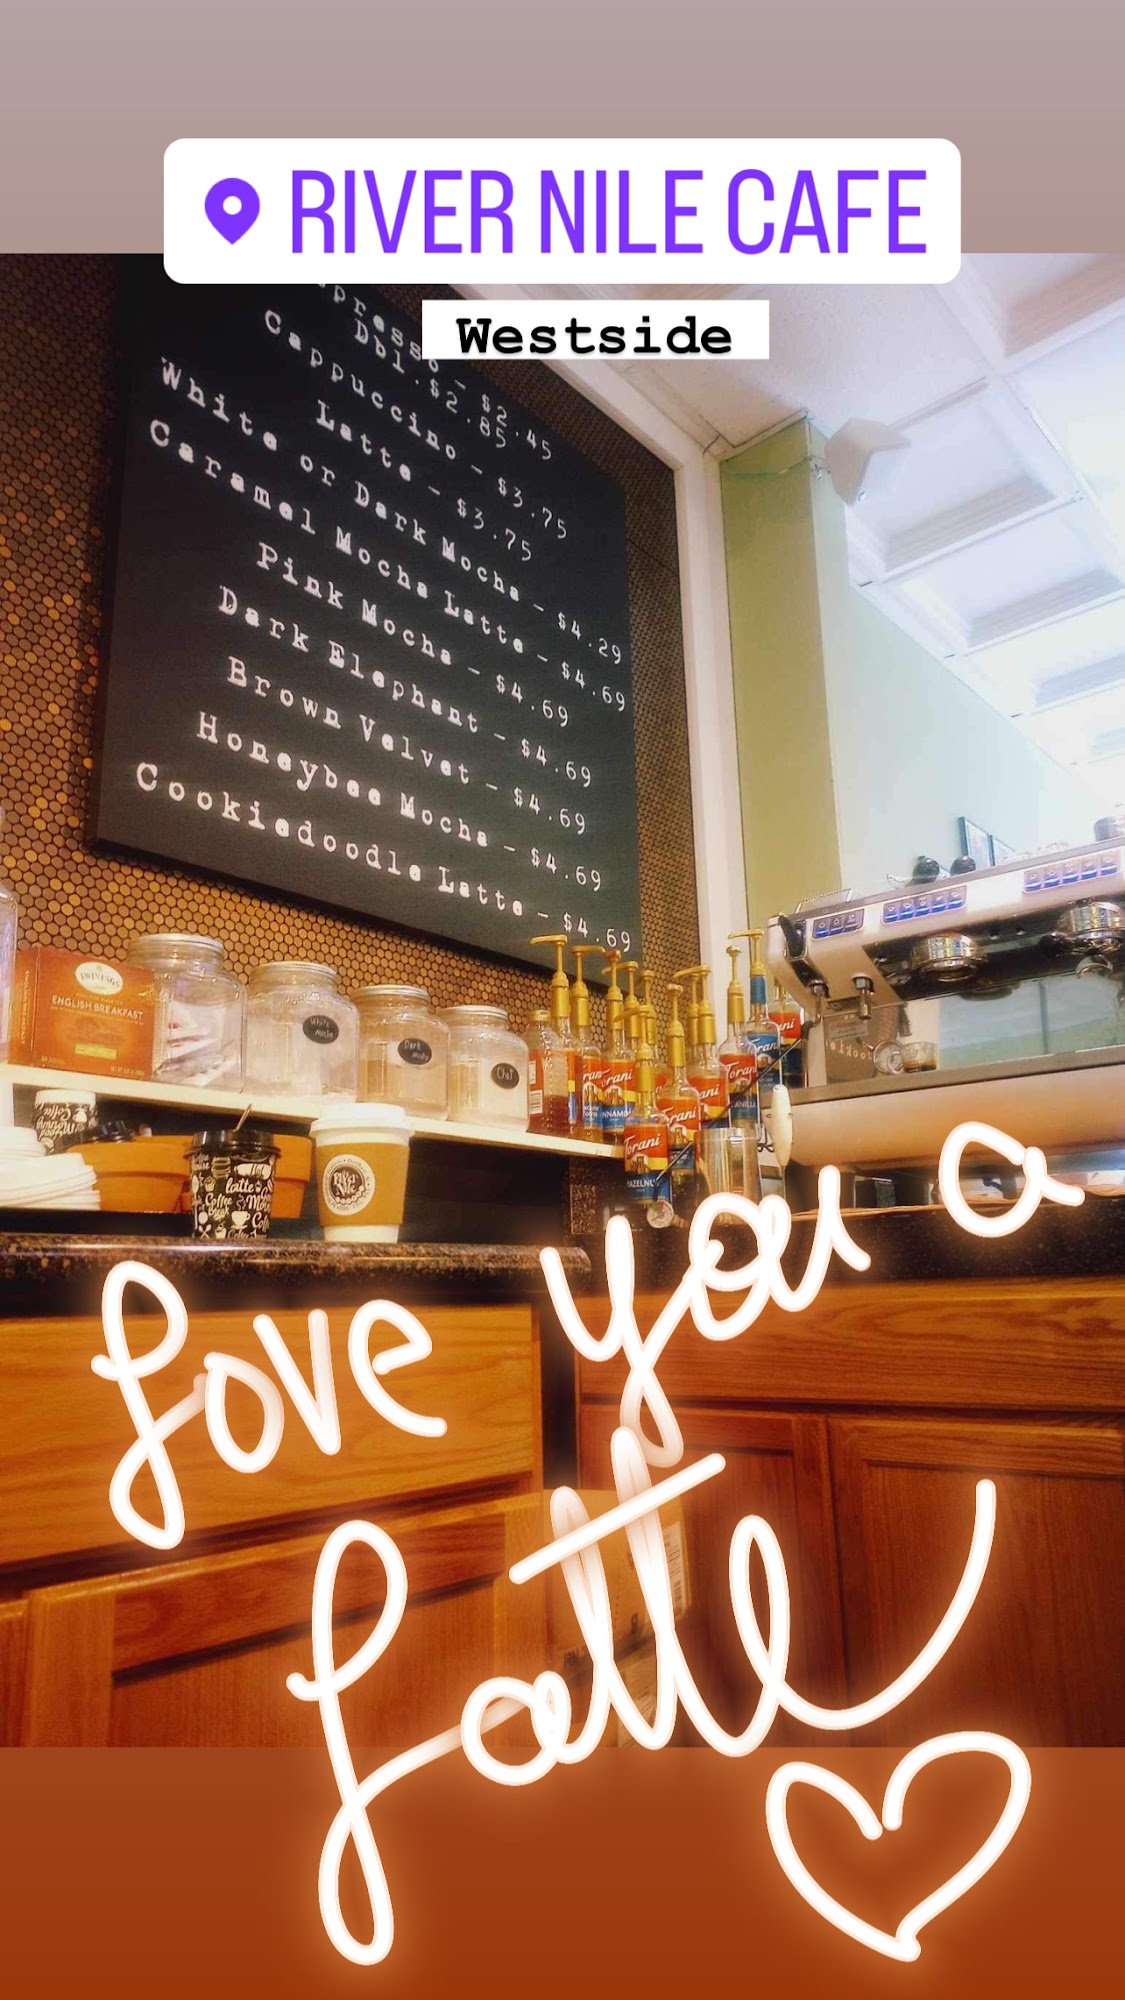 RIVER NILE CAFE
Westside
presso - $2.45
Dbl. $2.85
Cappuccino - $3.75
Latte - $3.75
White or Dark Mocha - $4.29
Caramel Mocha Latte - $4.69
Pink Mocha - $4.69
Dark Elephant - $4.69
Brown Velvet - $4.69
Honeybee Mocha - $4.69
Cookiedoodle Latte - $4.69
TWININGS
ENGLISH BREAKFAST
White mocha
Dark
Chai
Torani
Torani
Torani
Torani
HAZELNU
VANILLA
latte
Coffee
RIVER NILE
love you a
latte